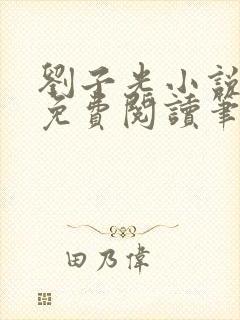 劉子光小說
免費閱讀筆
田乃偉